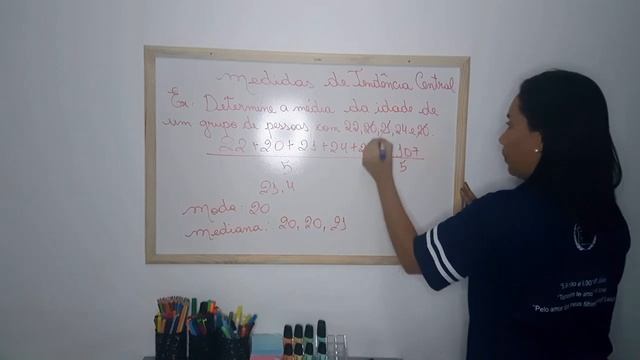 Medidas de Tendência Central
Ex: Determine a média da idade de
um grupo de pessoas com 22, 20, 21, 24 e 20.
22 + 20 + 21 + 24 + 2 107
5 5
21,4
Moda: 20
Mediana: 20, 20, 21